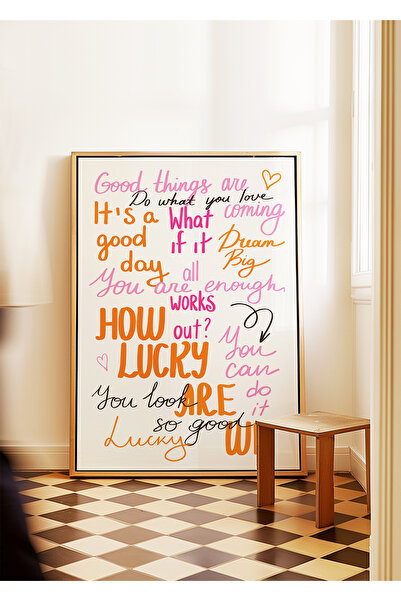 Good things are
Do what you love
coming
It's a
good
day
What
if it
all
works
out?
Dream
Big
You are enough
HOW
LUCKY
ARE
WE
You
can
do
it
You look
so good
Lucky